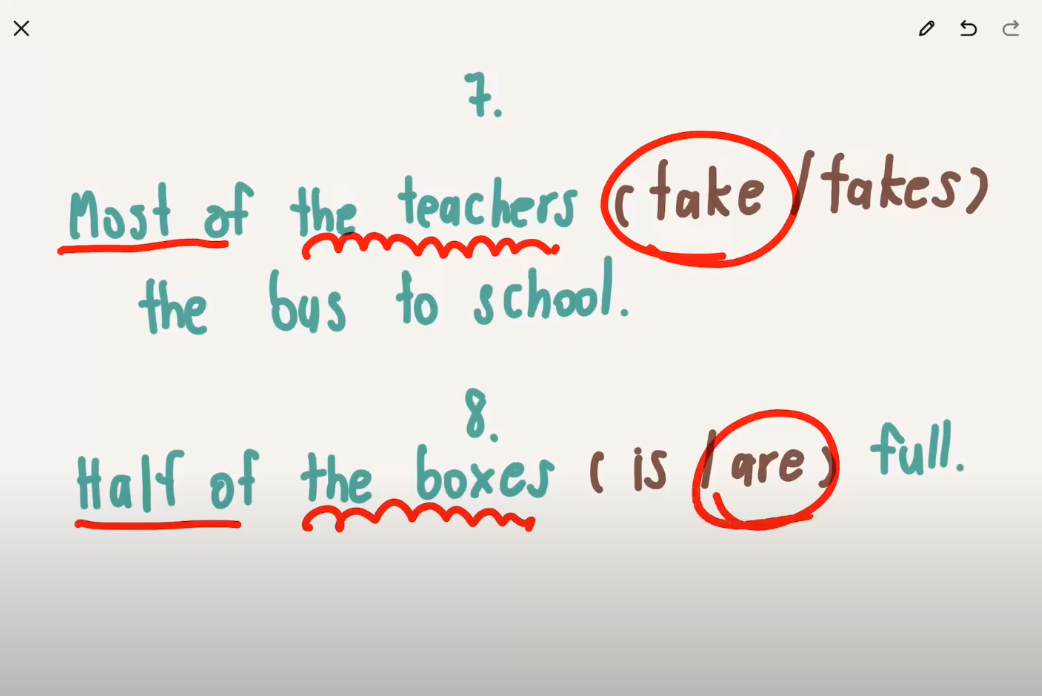 7.
Most of the teachers (take/takes)
the bus to school.
8.
Half of the boxes (is/are) full.